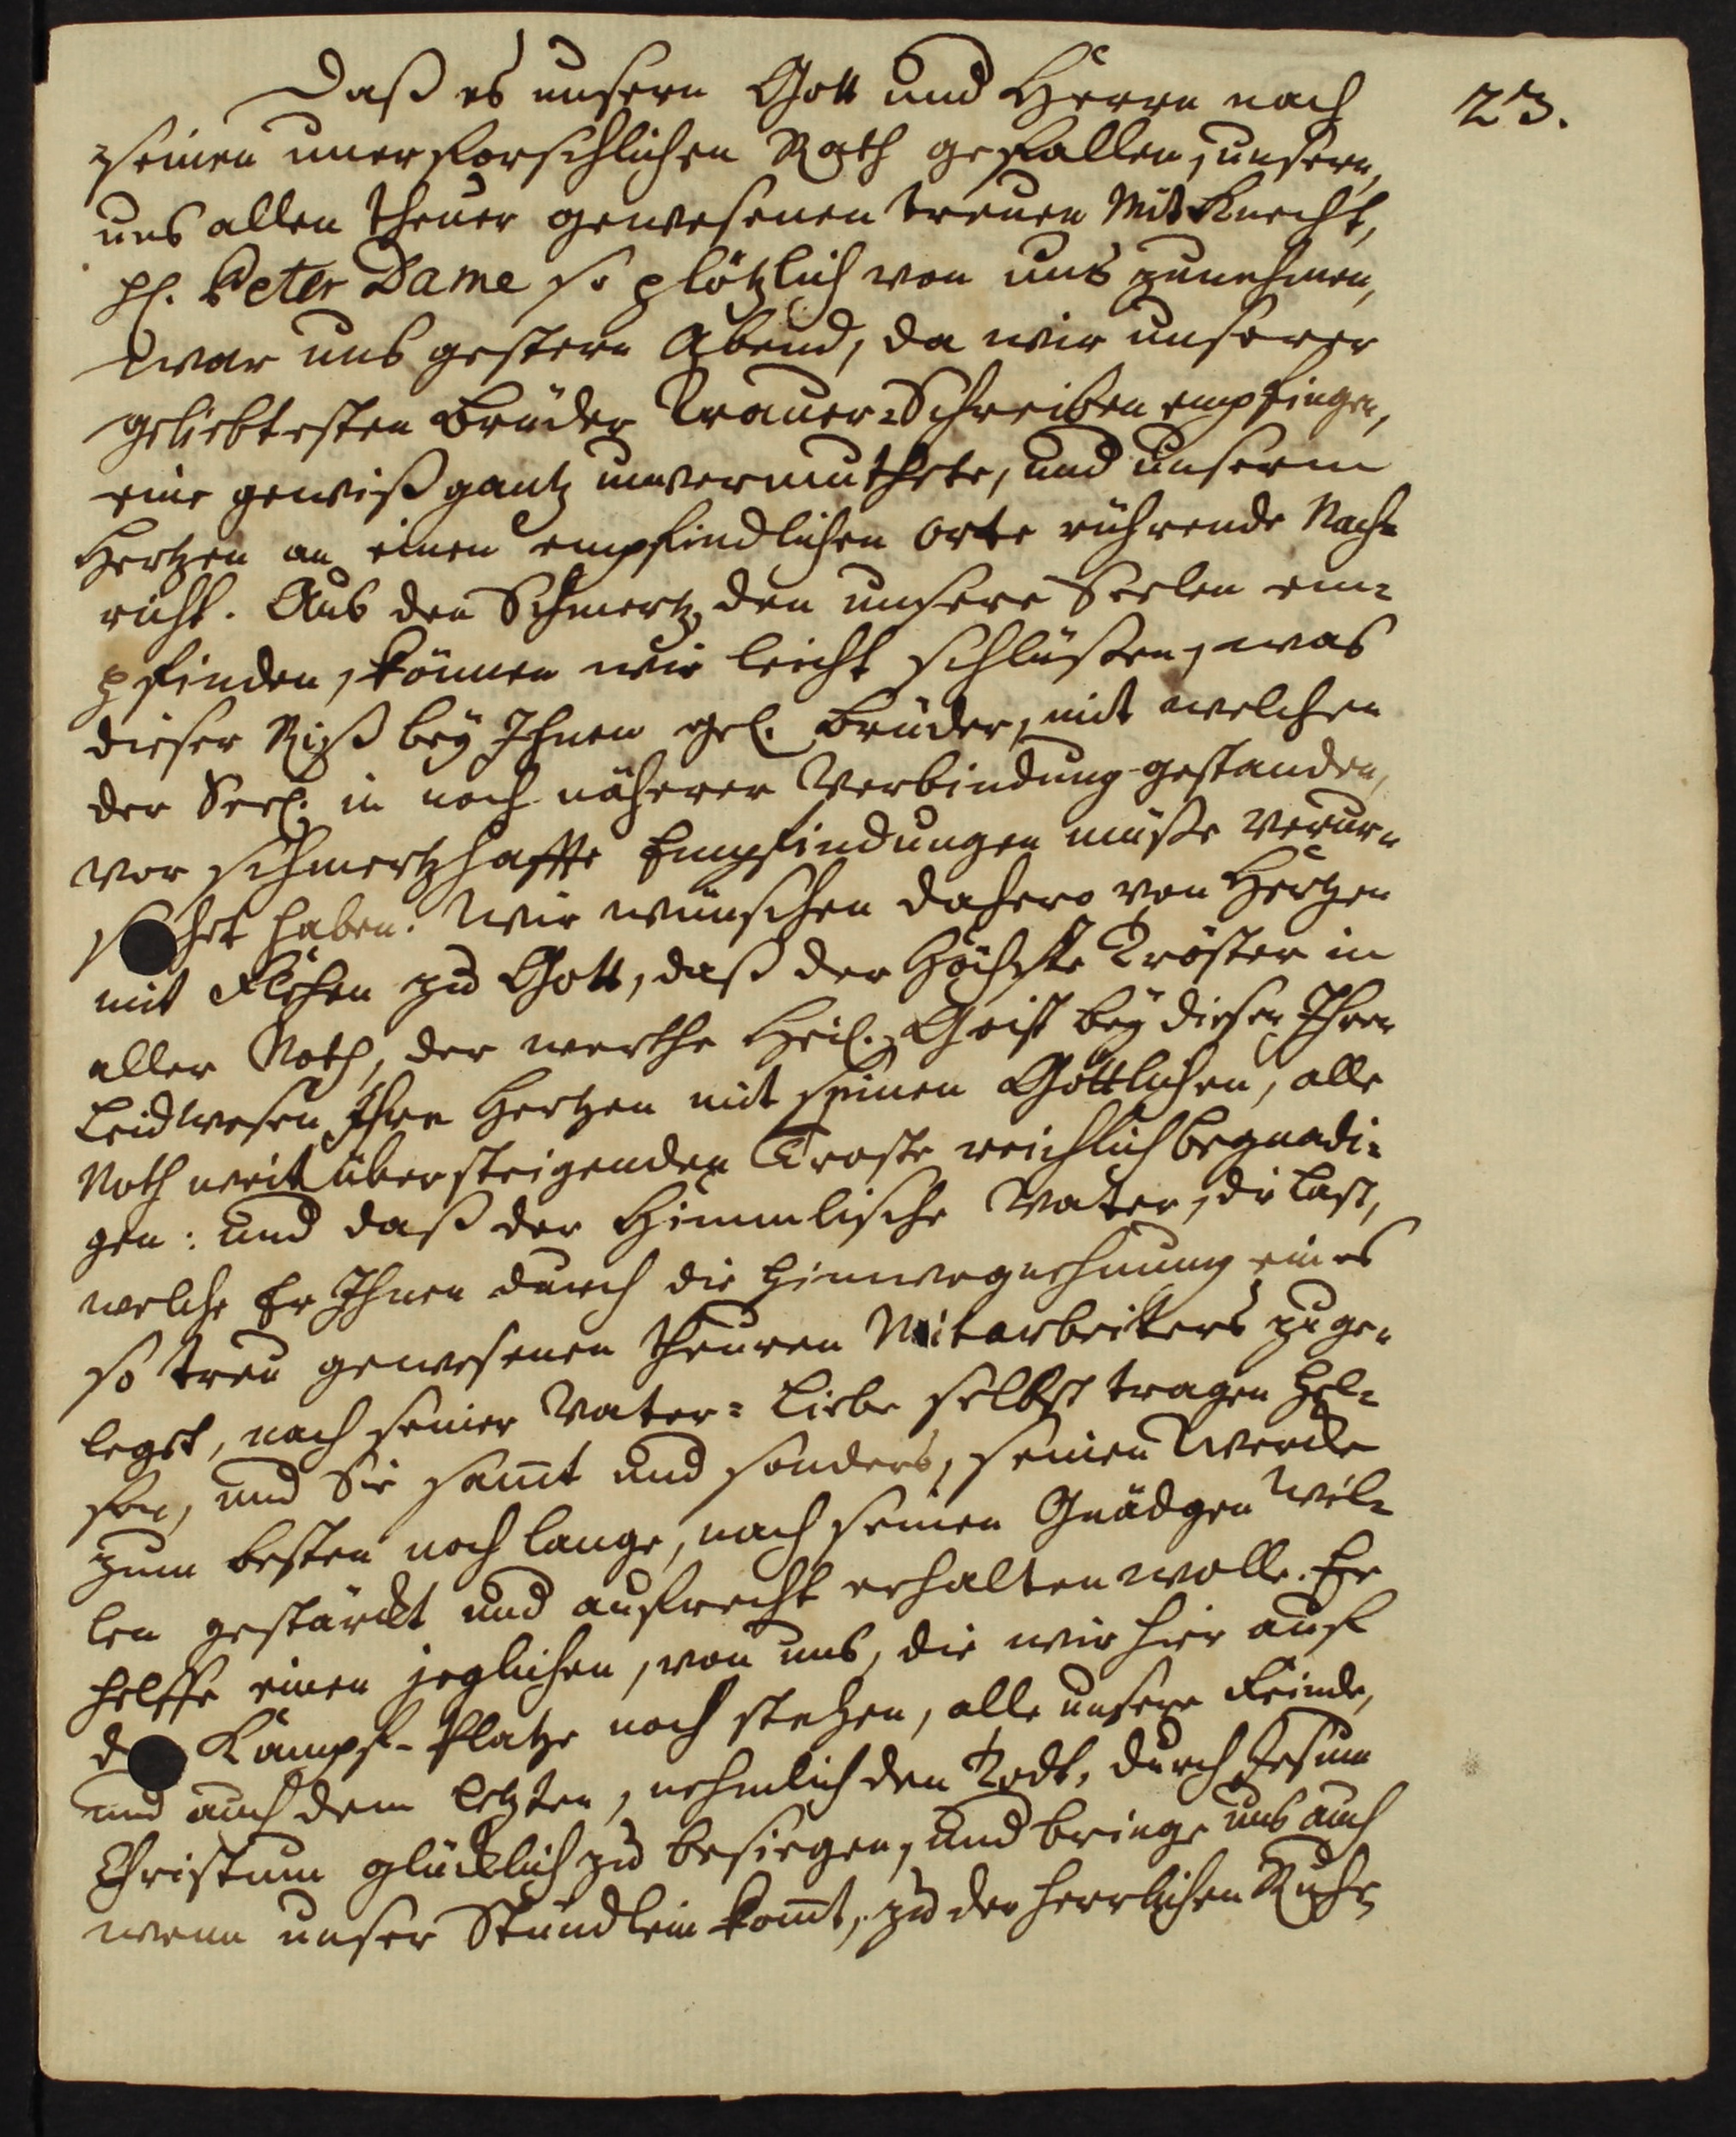 Daß es unsern Gott und Herrn nach
23.
seinen unerforschlichen Rath gefallen, unsern,
uns allen theuer gewesenen treuen Mit Knecht,
H. Peter Dame so plötzlich von uns zunehmen,
war uns gestern Abend, da wir unserer
geliebtesten Brüder Trauer-Schreiben empfingen,
eine gewiß gantz unvermuthete, und unserm
Hertzen an einen empfindlichen Orte rührende Nach-
richt. Aus den Schmertz, den unsere Seelen em-
pfinden, können wir leicht schlüßen, was
dieser Riß bey Ihnen gel. Brüder, mit welchen
der Seel. in noch näherer Verbindung gestanden,
vor schmertzhaffte Empfindungen müße verur-
s het haben. Wir wünschen dahero von Hertzen
mit Flehen zu Gott, daß der Höchste Tröster in
aller Noth, der werthe Heil. Geist bey diesen Ihren
Leidwesen Ihre Hertzen mit seinen Göttlichen, alle
Noth weit übersteigenden Troste reichlich begnadi-
gen: und daß der Himmlische Vater, die Last,
welche Er Ihnen durch die Hinwegnehmung eines
so treu gewesenen theuren Mitarbeiters zuge-
legst, nach seiner Vater-Liebe selbst tragen hel-
fen, und Sie samt und sonders, seinen Wercke
zum besten noch lange, nach seinen Gnädgen Wil-
len gestärckt und aufrecht erhalten wolle. Er
helffe einen jeglichen, von uns, die wir hier auf
d Kampf-Platze noch stehen, alle unsere Feinde,
und auch dem letzten, nehmlich den Todt, durch Jesum
Christum glücklich zu besiegen, und bringe uns auch
wenn unser Stündlein komt, zu der herrlichen Ruhe,